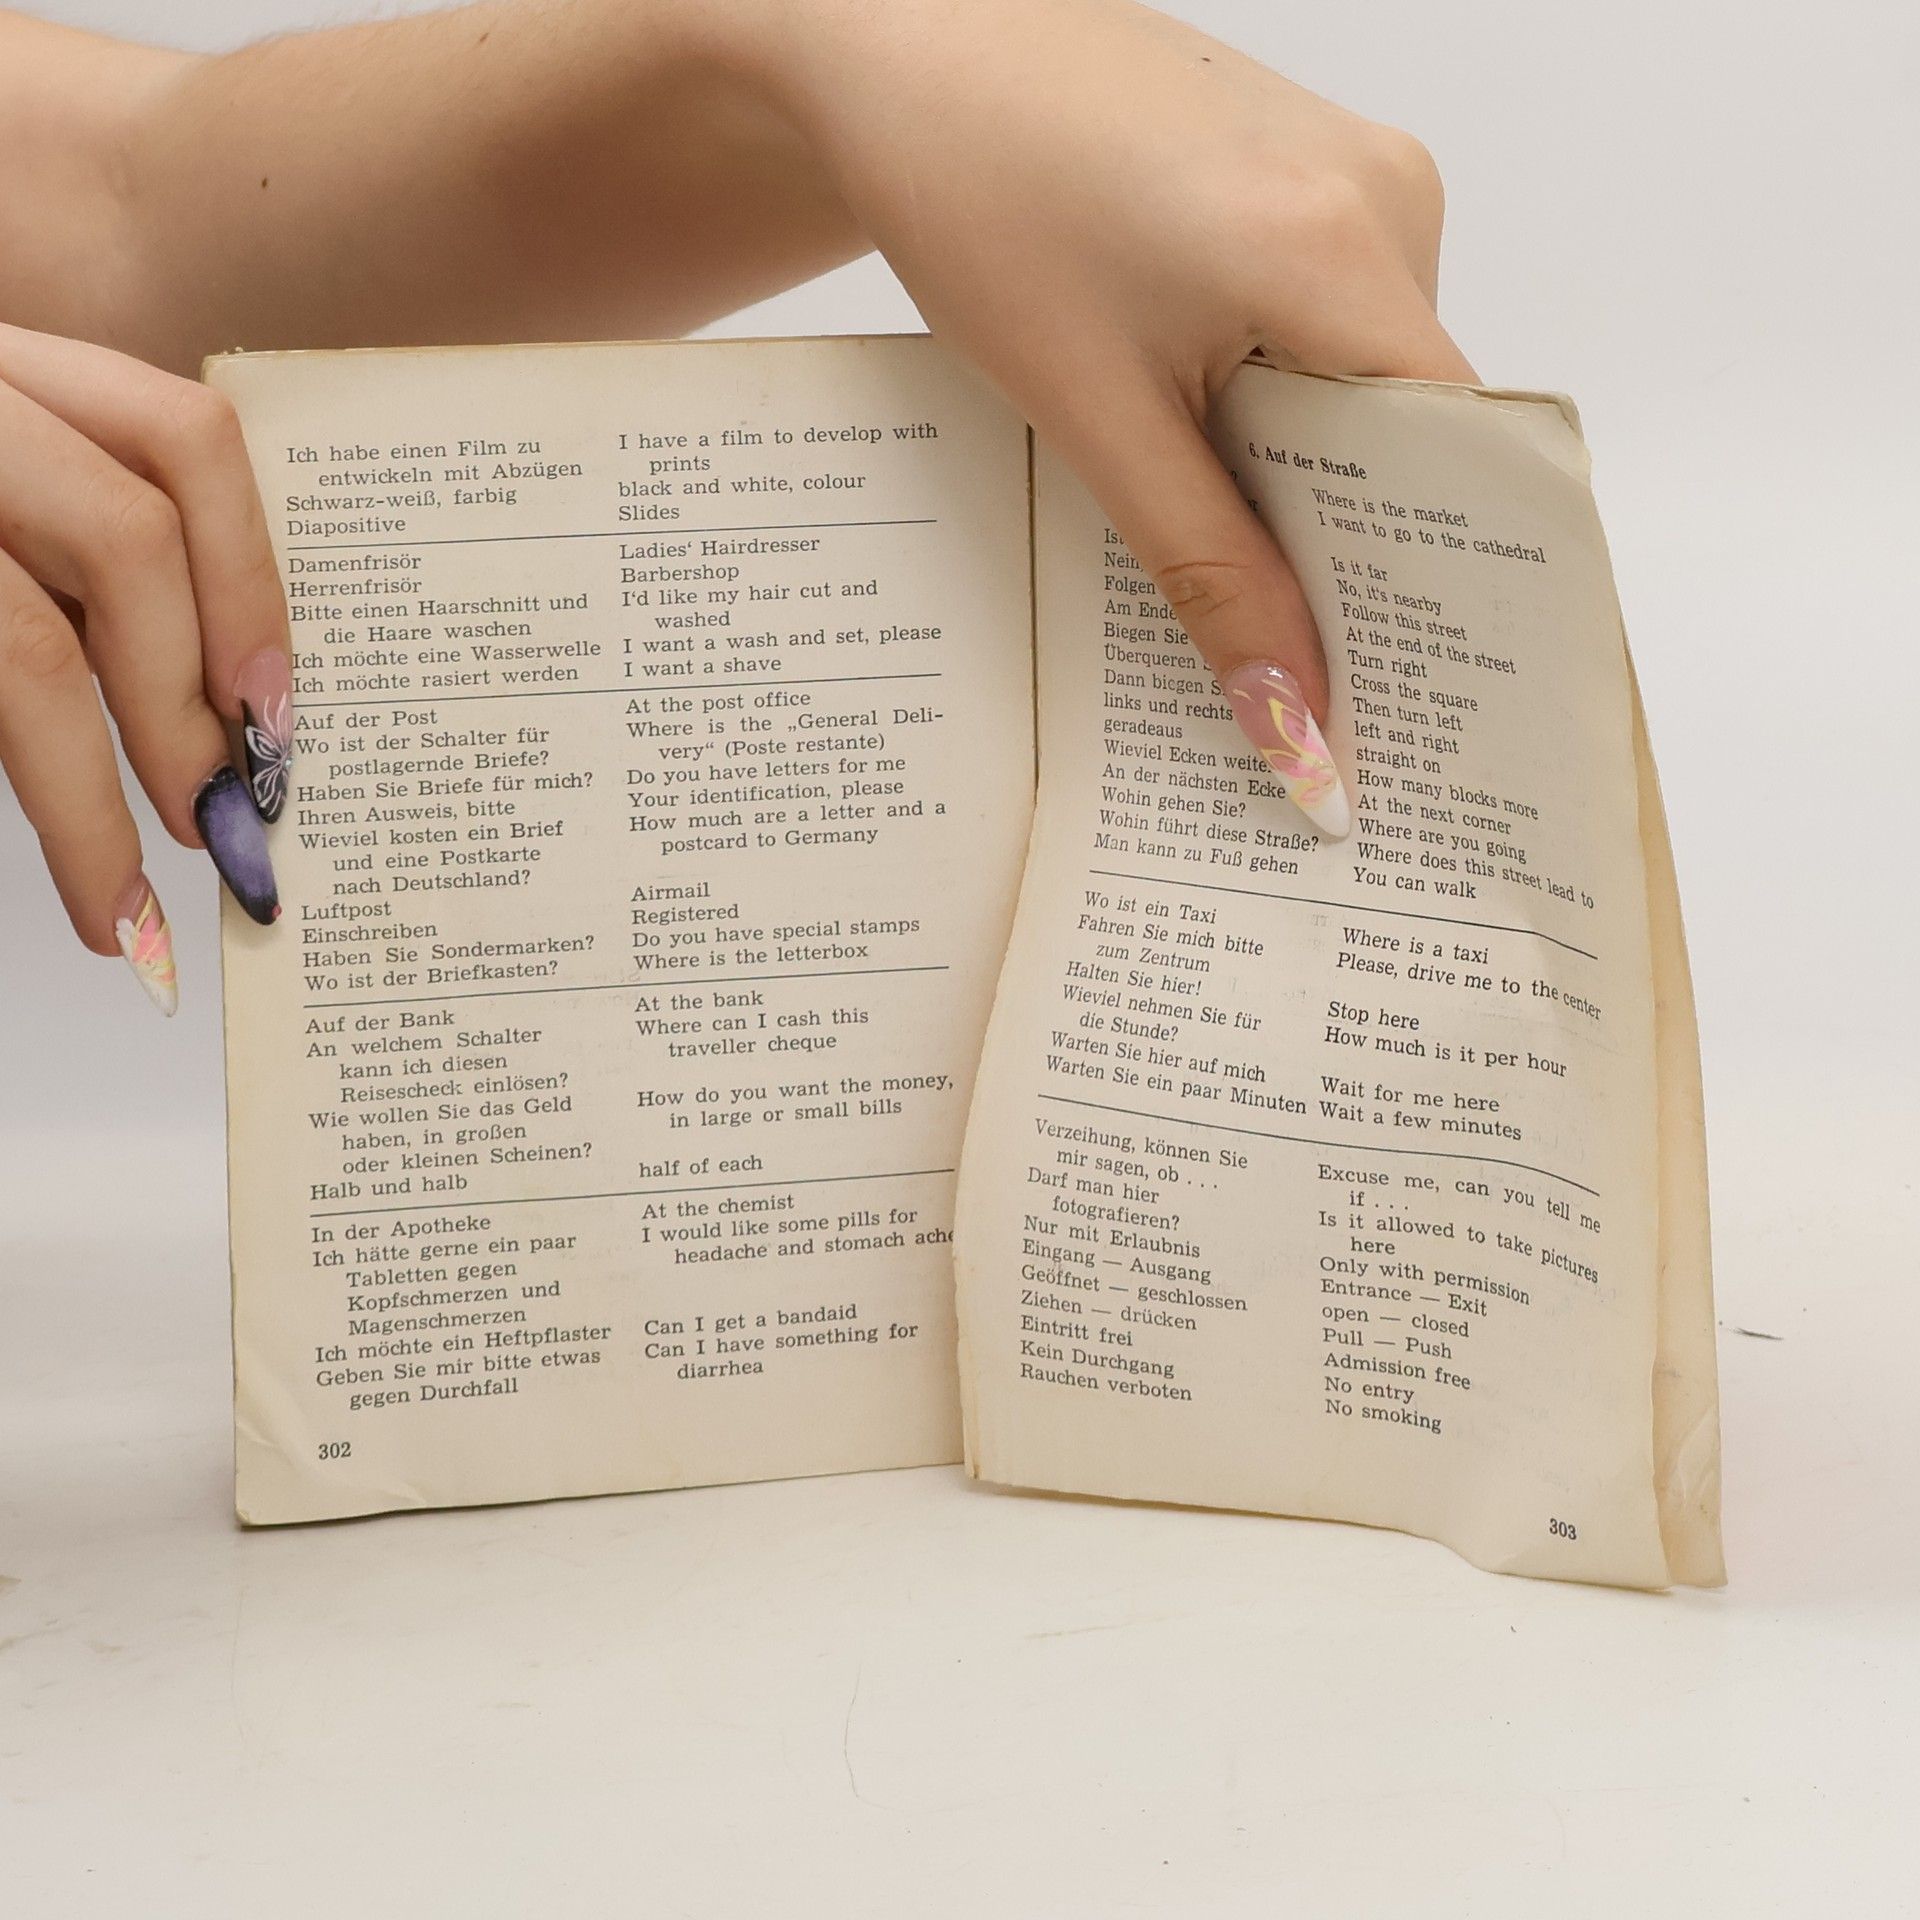 Ich habe einen Film zu
entwickeln mit Abzügen
Schwarz-weiß, farbig
Diapositive
I have a film to develop with
prints
black and white, colour
Slides
Damenfrisör
Herrenfrisör
Bitte einen Haarschnitt und
die Haare waschen
Ich möchte eine Wasserwelle
Ich möchte rasiert werden
Ladies‘ Hairdresser
Barbershop
I‘d like my hair cut and
washed
I want a wash and set, please
I want a shave
Auf der Post
Wo ist der Schalter für
postlagernde Briefe?
Haben Sie Briefe für mich?
Ihren Ausweis, bitte
Wieviel kosten ein Brief
und eine Postkarte
nach Deutschland?
Luftpost
Einschreiben
Haben Sie Sondermarken?
Wo ist der Briefkasten?
At the post office
Where is the „General Deli-
very“ (Poste restante)
Do you have letters for me
Your identification, please
How much are a letter and a
postcard to Germany
Airmail
Registered
Do you have special stamps
Where is the letterbox
Auf der Bank
An welchem Schalter
kann ich diesen
Reisescheck einlösen?
Wie wollen Sie das Geld
haben, in großen
oder kleinen Scheinen?
Halb und halb
At the bank
Where can I cash this
traveller cheque
How do you want the money,
in large or small bills
half of each
In der Apotheke
Ich hätte gerne ein paar
Tabletten gegen
Kopfschmerzen und
Magenschmerzen
Ich möchte ein Heftpflaster
Geben Sie mir bitte etwas
gegen Durchfall
At the chemist
I would like some pills for
headache and stomach ache
Can I get a bandaid
Can I have something for
diarrhea
302
6. Auf der Straße
Nein,
Folgen
Am Ende
Biegen Sie
Überqueren
Dann biegen
links und rechts
geradeaus
Wieviel Ecken
An der nächsten Ecke
Wohin gehen Sie?
Wohin führt diese Straße?
Man kann zu Fuß gehen
Where is the market
I want to go to the cathedral
Is it far
No, it's nearby
Follow this street
At the end of the street
Turn right
Cross the square
Then turn left
left and right
straight on
How many blocks more
At the next corner
Where are you going
Where does this street lead to
You can walk
Wo ist ein Taxi
Fahren Sie mich bitte
zum Zentrum
Halten Sie hier!
Wieviel nehmen Sie für
die Stunde?
Warten Sie hier auf mich
Warten Sie ein paar Minuten
Where is a taxi
Please, drive me to the center
Stop here
How much is it per hour
Wait for me here
Wait a few minutes
Verzeihung, können Sie
mir sagen, ob . . .
Darf man hier
fotografieren?
Nur mit Erlaubnis
Eingang — Ausgang
Geöffnet — geschlossen
Ziehen — drücken
Eintritt frei
Kein Durchgang
Rauchen verboten
Excuse me, can you tell me
if . . .
Is it allowed to take pictures
here
Only with permission
Entrance — Exit
open — closed
Pull — Push
Admission free
No entry
No smoking
303